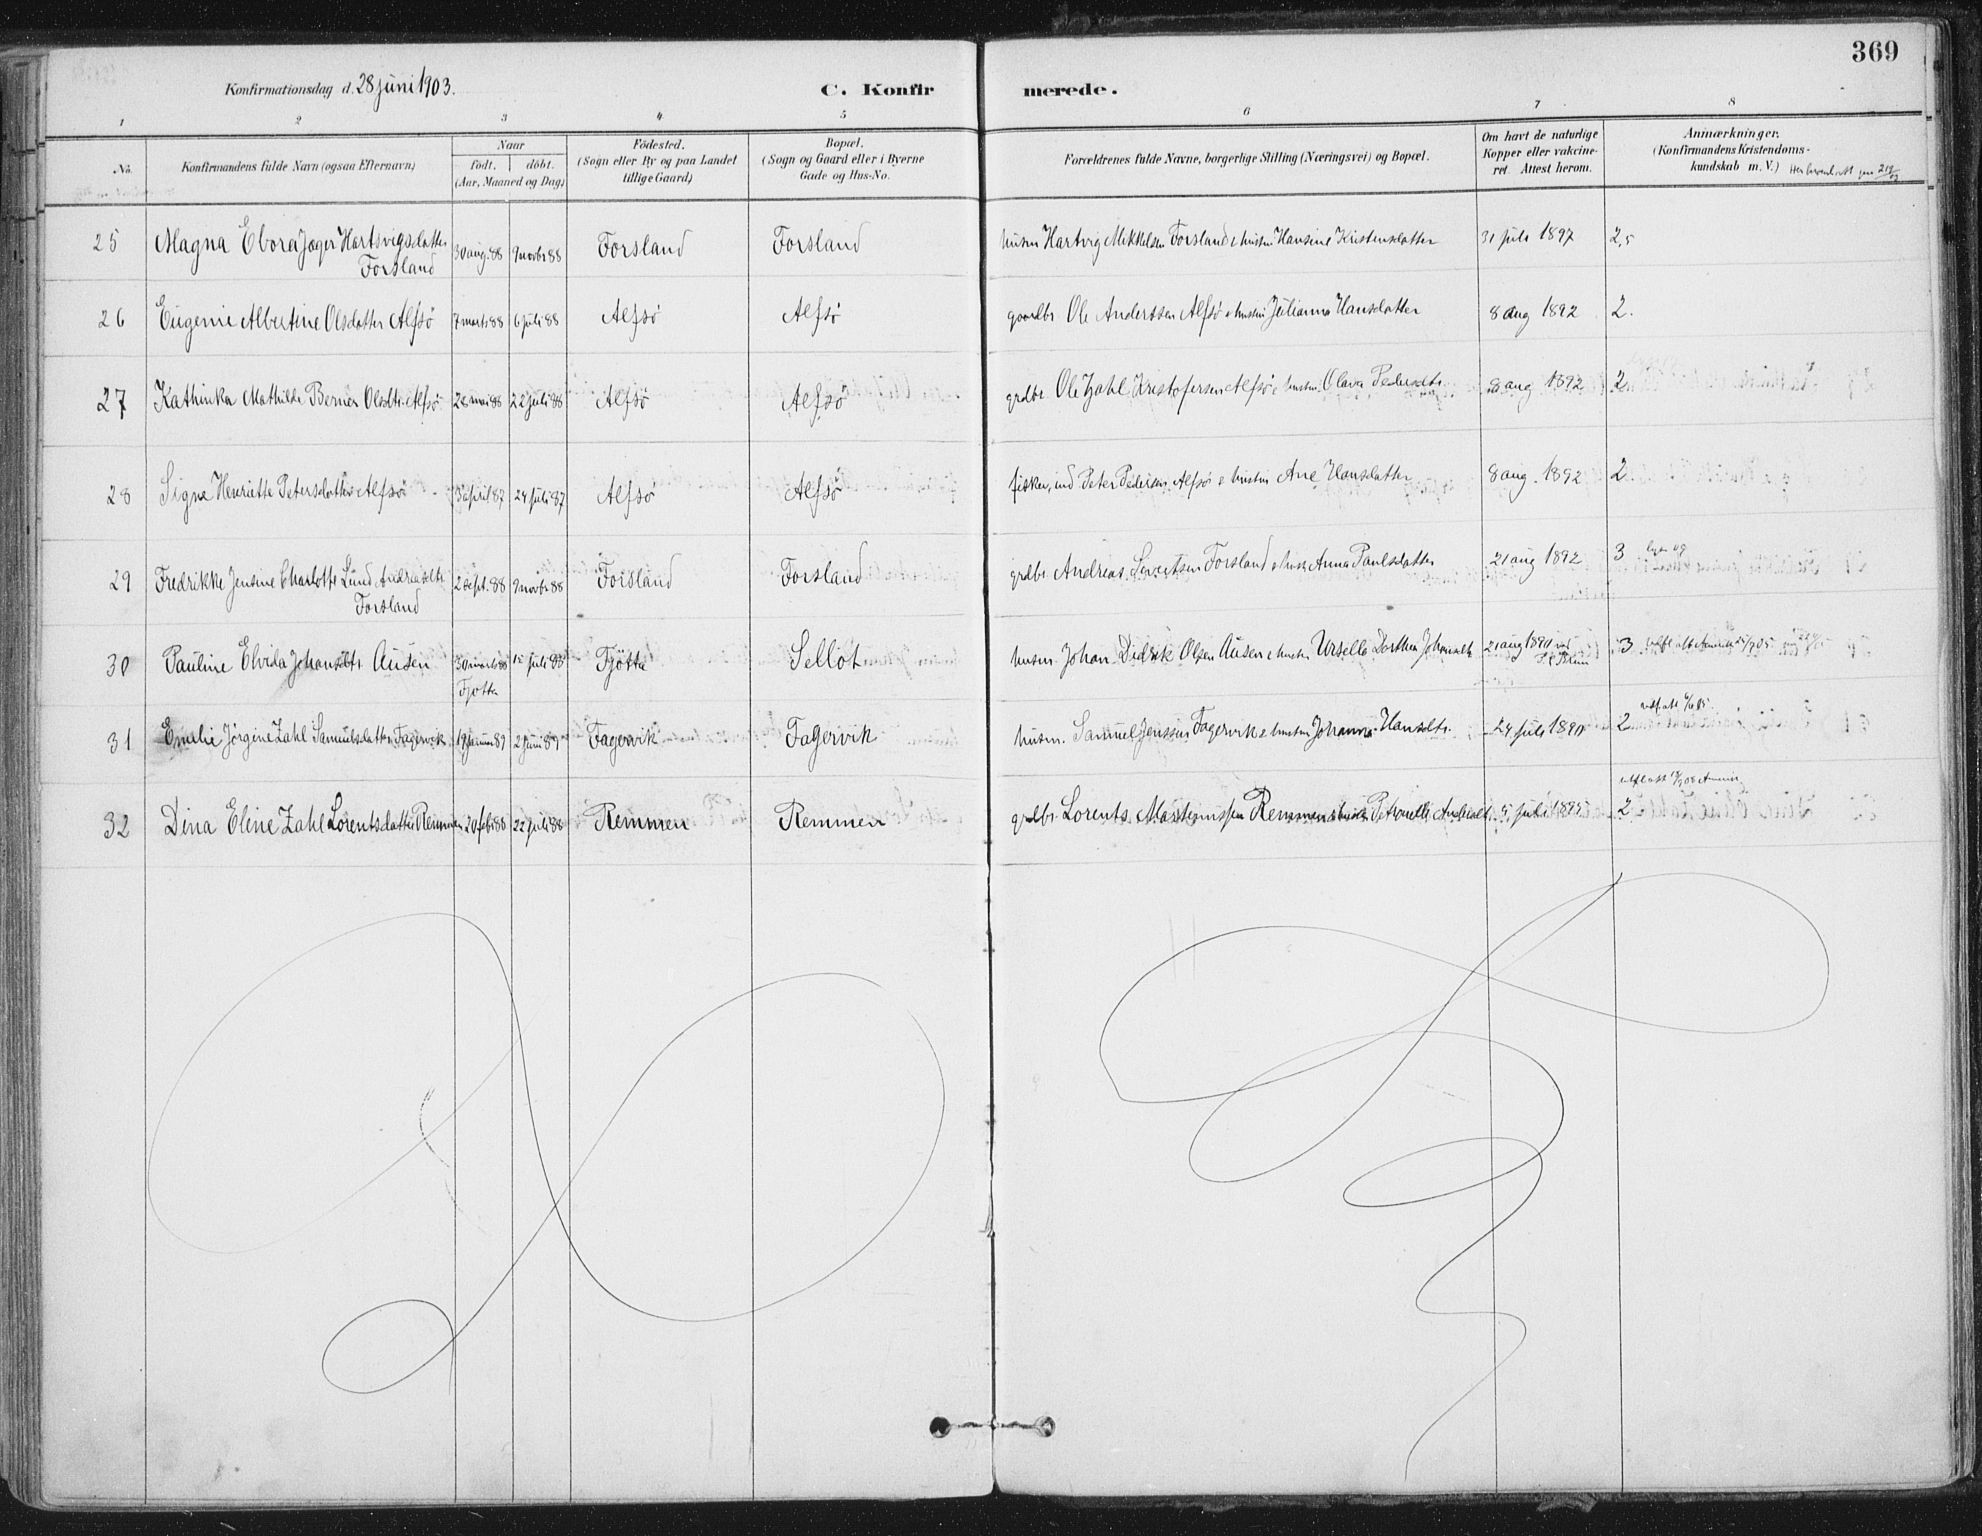 369
Konfirmationsdag d. 28 juni 1903.
C. Konfirmerede.
1 2 3 4 5 6 7 8
No.
Konfirmandens fulde Navn (ogsaa Efternavn)
Naar
født. døbt.
(Aar, Maaned og Dag)
Födested.
(Sogn eller By og paa Landet
tillige Gaard)
Bopæl.
(Sogn og Gaard eller i Byerne
Gade og Hus-No.
Forældrenes fulde Navne, borgerlige Stilling (Næringsvei) og Bopæl.
Om havt de naturlige
Kopper eller vakcine-
ret. Attest herom.
Anmærkninger.
(Konfirmandens Kristendoms-
kundskab m. V.)
25 Magna Ebora Jæger Hartvigsdatter 30 aug. 88 9 novbr 88 Forsland Forsland husm Hartvig Mikkelsen Forsland & hustru Hansine Kristensdatter 31 juli 1897 2,5
Forsland
26 Eugenie Albertine Olsdatter Alfsö 7 marts 88 6 juli 88 Alfsö Alfsö gaardbr Ole Anderssen Alfsö & hustru Julianna Hansdatter 8 aug 1892 2.
27 Kathinka Mathilde Berner Olsdtr. Alfsö 28 mai 88 22 juli 88 Alfsö Alfsö grdbr. Ole Zahl Kristofersen Alfsö & hustru Olava Pedersdtr. 8 aug 1892 2
28 Signe Henriette Petersdatter Alfsö 3 april 87 24 juli 87 Alfsö Alfsö fisker, ind Peter Pedersen Alfsö & hustru Ane Hansdatter 8 aug. 1892 2
29 Fredrikke Jensine Charlotte Lund Andreasdtr 2 sept. 88 9 novbr 88 Forsland Forsland grdbr Andreas Sivertsen Forsland & hustr Anna Paulsdatter 21 aug 1892 3
Forsland
30 Pauline Elvida Johansdtr. Ausen 30 marts 88 15 juli 88 Tjötta Sellot husm. Johan Didrik Olsen Ausen & hustru Ursella Dorthea Johansdtr 21 aug 1890 3
Tjotta
31 Emelie Jörgine Zahl Samuelsdatter Fagervik 19 januar 89 2 juni 89 Fagervik Fagervik husm. Samuel Jenssen Fagervik & hustru Johanna Hansdtr. 24 juli 1890 2
32 Dina Eline Zahl Lorentsdatter Remmen 20 febr 88 22 juli 88 Remmen Remmen grdbr. Lorents Remmen & hustru Petronelle 5 juli 1895 2